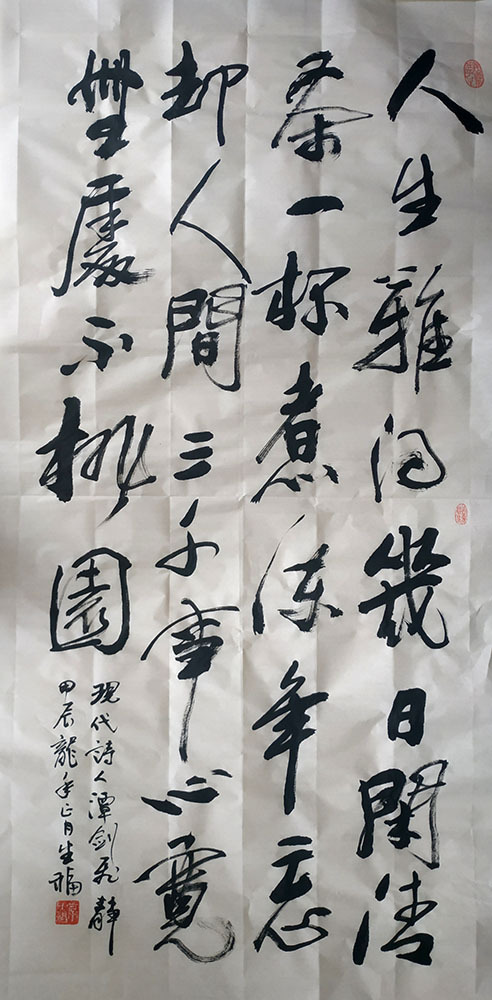 人生難得幾日閑清
茶一杯煮流年忘
却人間三千事心寬
無處不桃園
現代詩人潭剑飛
甲辰龍年正月生福